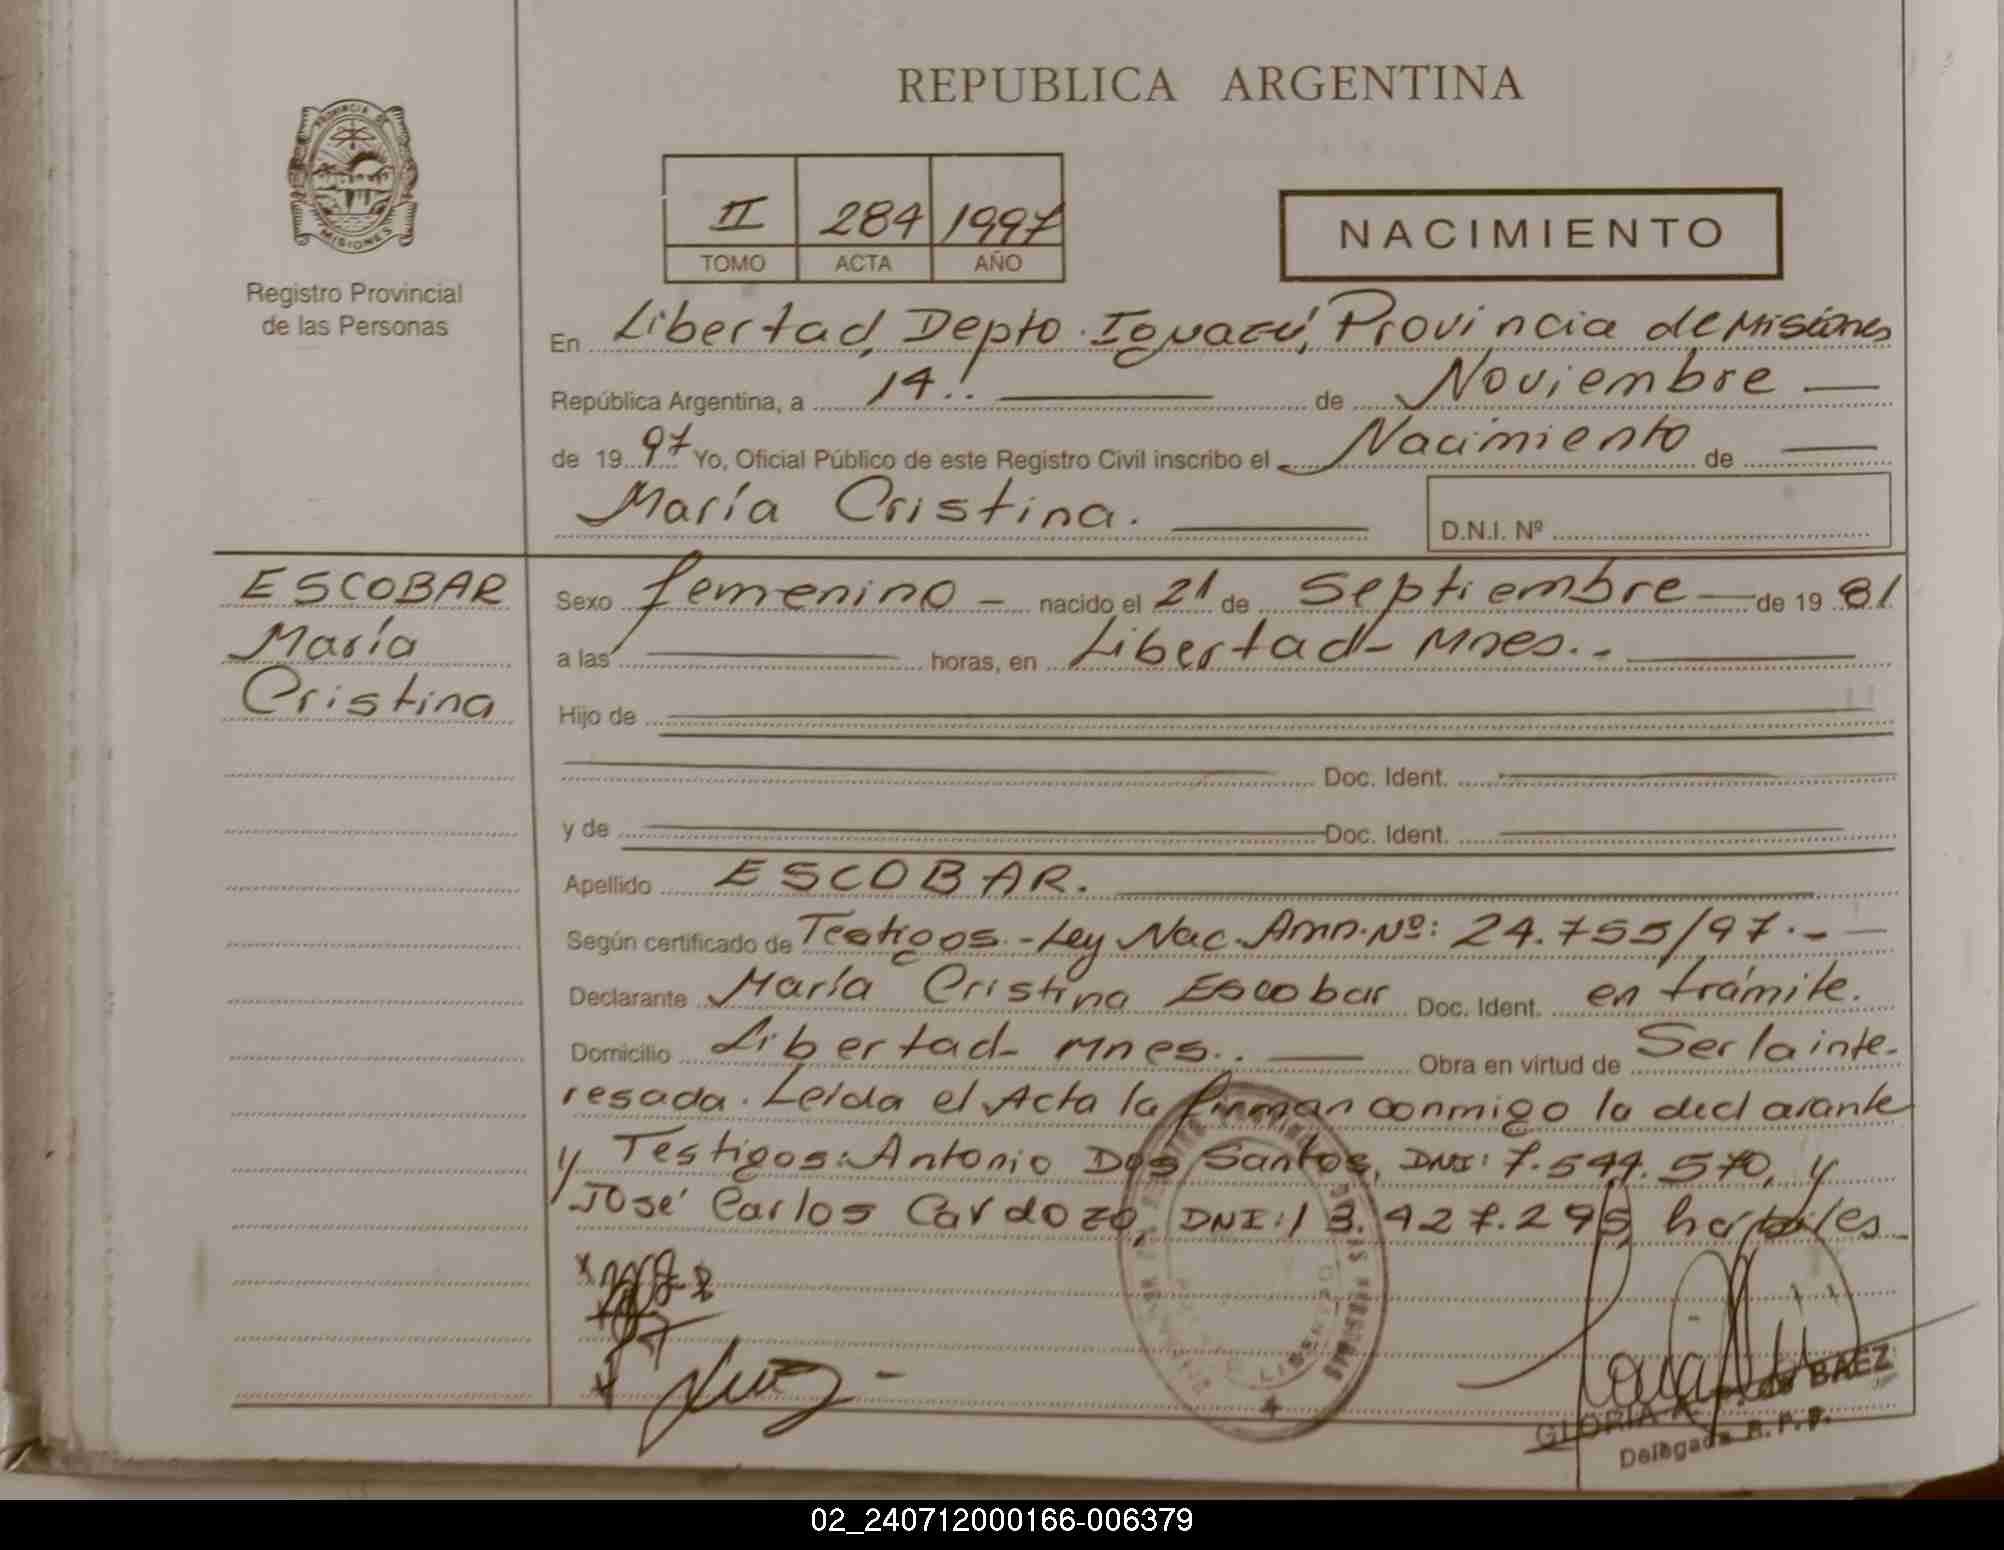 REPUBLICA ARGENTINA
PROVINCIA DE
MISIONES
Registro Provincial
de las Personas
II 284 1997
TOMO ACTA AÑO
NACIMIENTO
En Libertad, Depto. Iguazú, Provincia de Misiones
República Argentina, a 14.. de Noviembre
de 1997 Yo, Oficial Público de este Registro Civil inscribo el Nacimiento de
María Cristina.
D.N.I. Nº
ESCOBAR
María
Cristina
Sexo femenino - nacido el 21 de Septiembre de 1981
a las horas, en Libertad - Mnes..
Hijo de
Doc. Ident.
y de Doc. Ident.
Apellido ESCOBAR.
Según certificado de Testigos.- Ley Nac. Amn. Nº: 24.755/97.-
Declarante María Cristina Escobar Doc. Ident. en trámite.
Domicilio Libertad - Mnes.. Obra en virtud de Ser la inte-
resada. Leída el Acta la firman conmigo la declarante
y Testigos: Antonio Dos Santos, DNI: 7.544.570, y
José Carlos Cardozo, DNI: 13.427.295, habiles
GLORIA A. de BAEZ
Delegada R. P. P.
02_240712000166-006379